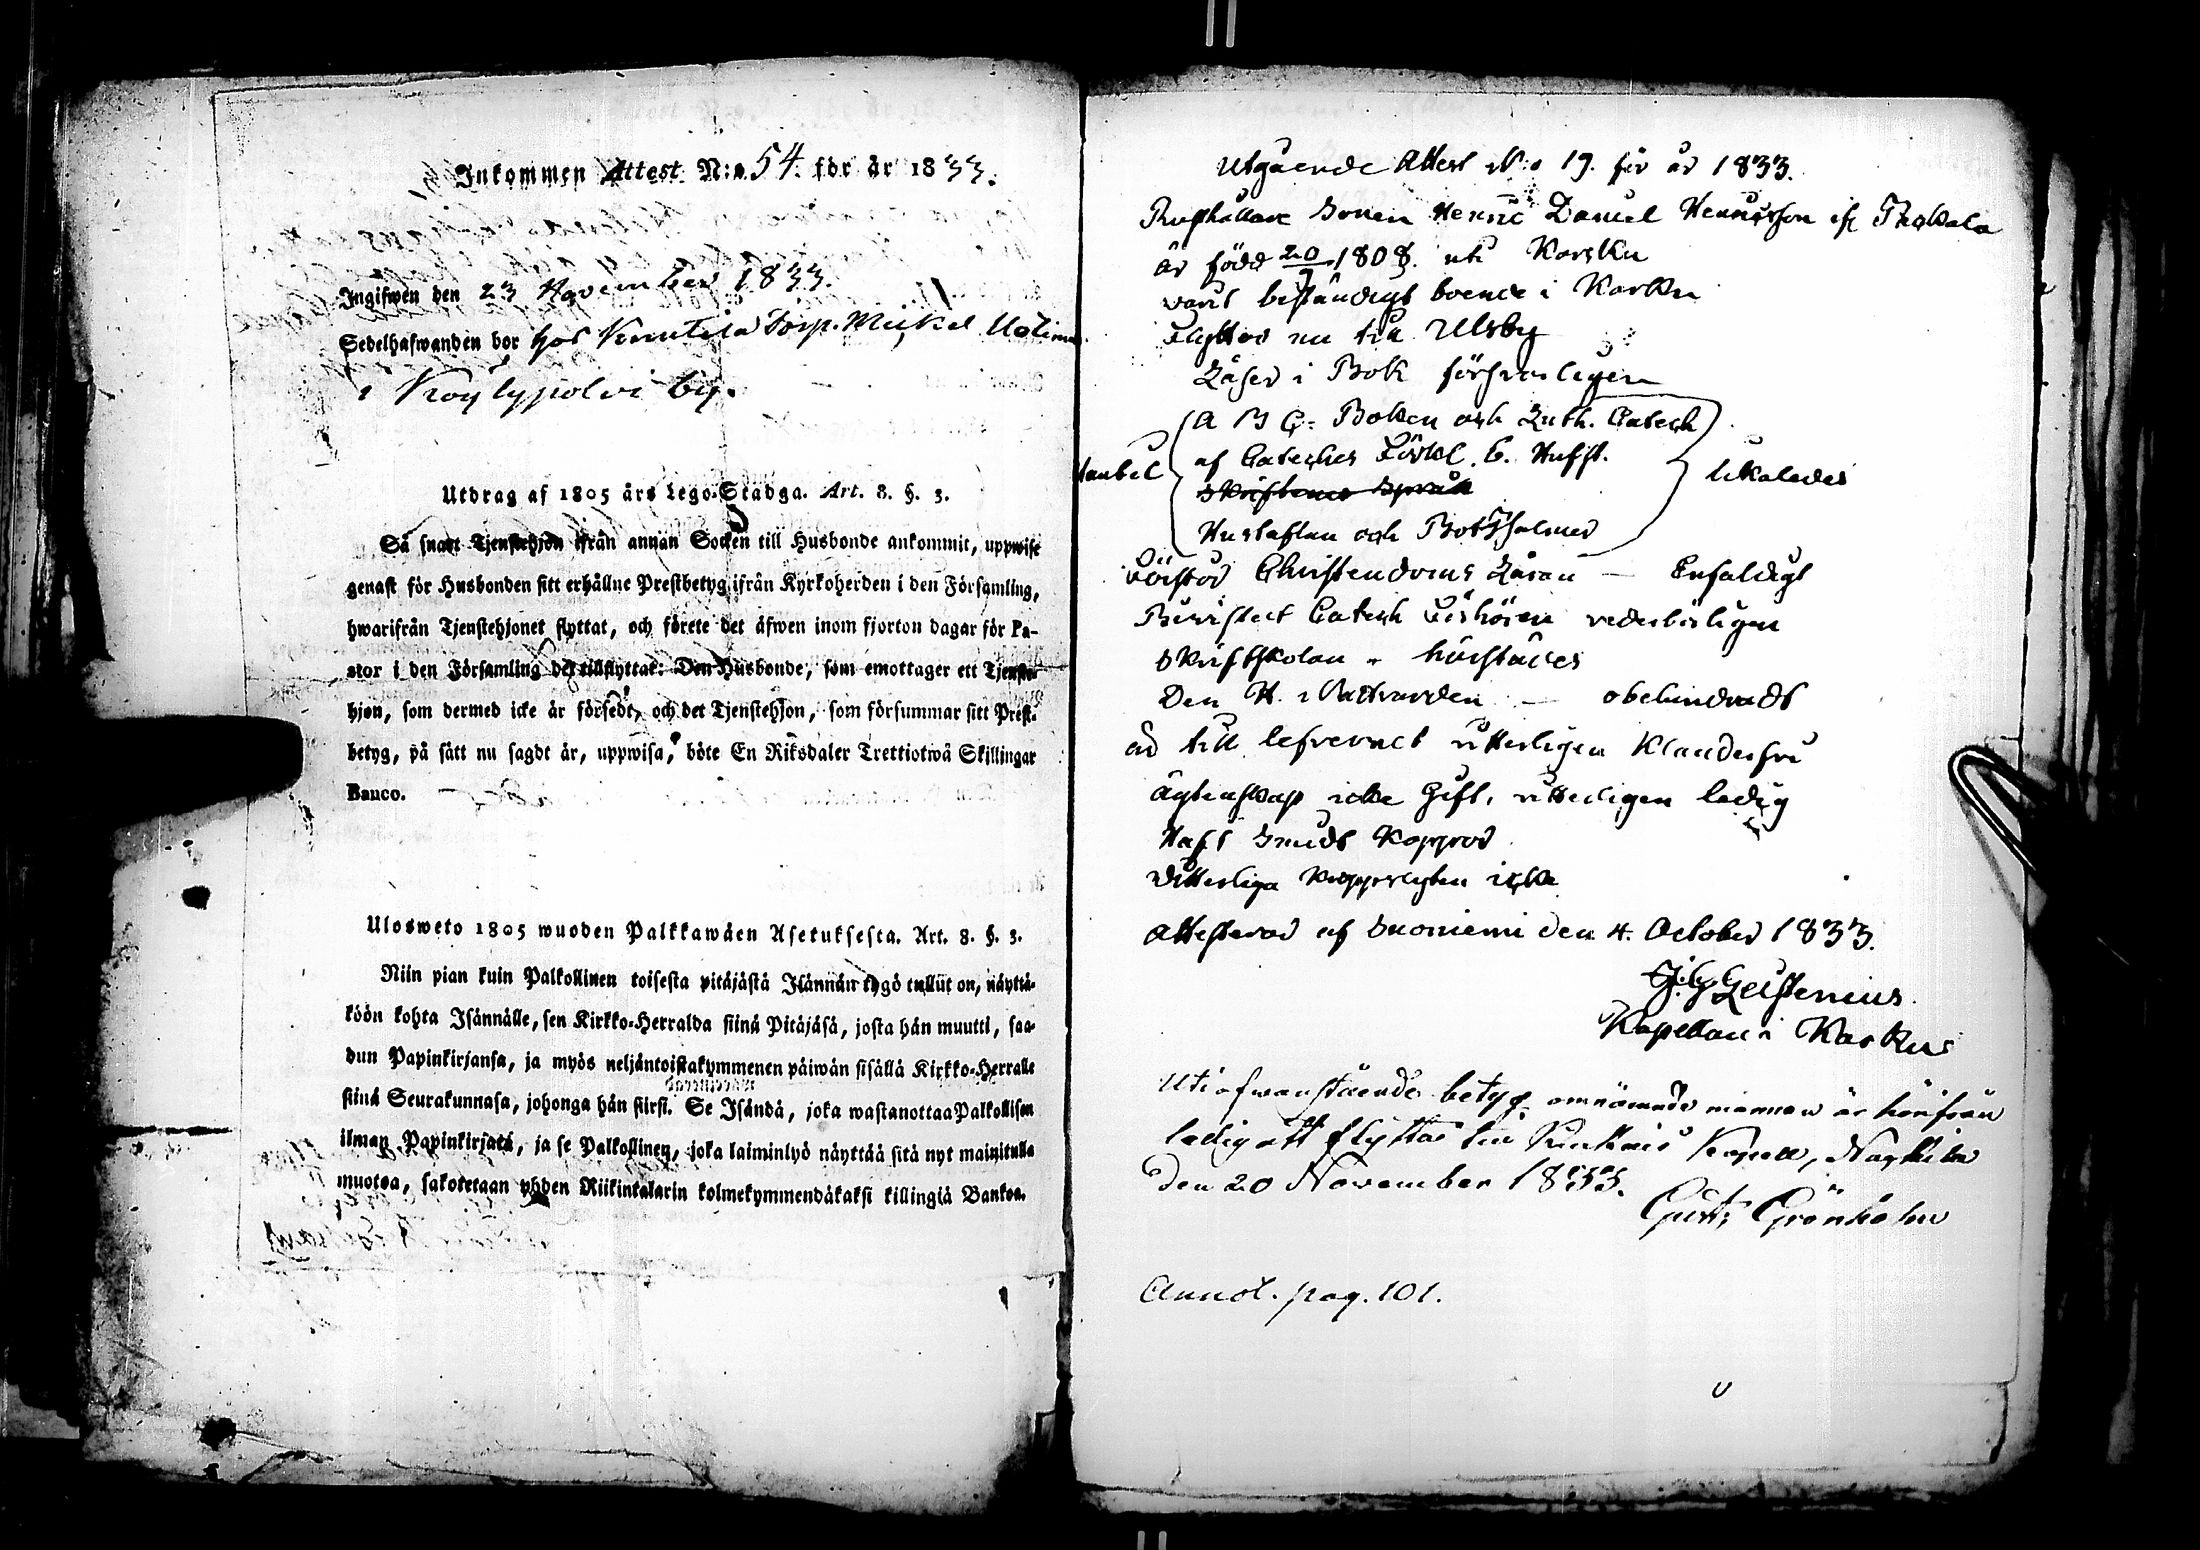 Inkommen Attest N:o 54. för år 1833.
Ingifwen den 23 November 1833.
Sedelhafwanden bor hos Knuutila Torp. Mickel
i Köylypolvi by.
Utdrag af 1805 års Lego-Stadga. Art. 8. §. 3.
Så snart Tjenstehjon ifrån annan Socken till Husbonde ankommit, uppwise
genast för Husbonden sitt erhållne Prestbetyg ifrån Kyrkoherden i den Församling,
hwarifrån Tjenstehjonet flyttat, och förete det äfwen inom fjorton dagar för Pa-
stor i den Församling det tillflyttat: Den Husbonde, som emottager ett Tjenste-
hjon, som dermed icke är försedt, och det Tjenstehjon, som försummar sitt Prest-
betyg, på sätt nu sagdt är, uppwisa, böte En Riksdaler Trettiotwå Skillingar
Banco.
Ulosweto 1805 wuoden Palkkawäen Asetuksesta. Art. 8. §. 3.
Niin pian kuin Palkollinen toisesta pitäjästä Isännän tygö tullut on, näyttä-
köön kohta Isännälle, sen Kirkko-Herralda siinä Pitäjäsä, josta hän muutti, saa-
dun Papinkirjansa, ja myös neljäntoistakymmenen päiwän sisällä Kirkko-Herralle
siinä Seurakunnasa, johonga hän siirsi. Se Isändä, joka wastanottaa Palkollisen
ilman Papinkirjatä, ja se Palkollinen, joka laiminlyö näyttää sitä nyt mainitulla
muotoa, sakotetaan yhden Riikintalarin kolmekymmendäkaksi killingiä Bankoa.
Utgående Attest N:o 19. för år 1833.
Rusthållare Sonen Henric Daniel Henricsson ifr
är född 20/9 1808. uti Karkku
varit beständigt boende i Karkku
Flyttar nu till Ulfsby
Läser i Bok försvarligen
A B C-Boken och Luth. Catech
af Cateches Förkl. C. Hufst.
Skriftenes Språk
Hustaflan och BotPsalmer
Utanbel likaledes
Förstår Christendoms Läran — Enfaldigt
Bevistat Catech Förhören vederbörligen
Skriftskolan " härstädes
Den H. Nattvarden — obehindradt
är till lefvernet vitterligen klanderfri
Ägtenskap icke Gift, vitterligen ledig
Haft Smidt Koppor
Vitterliga Kroppslyten icke
Attesterar af Suoniemi den 4. October 1833.
Kapellan i Karkku
Uti ofwanstående betyg omnämnde mannen är härifrån
ledig att flyttas till Kapell,
den 20 November 1833.
Gust. Grönholm
Annot. pag. 101.